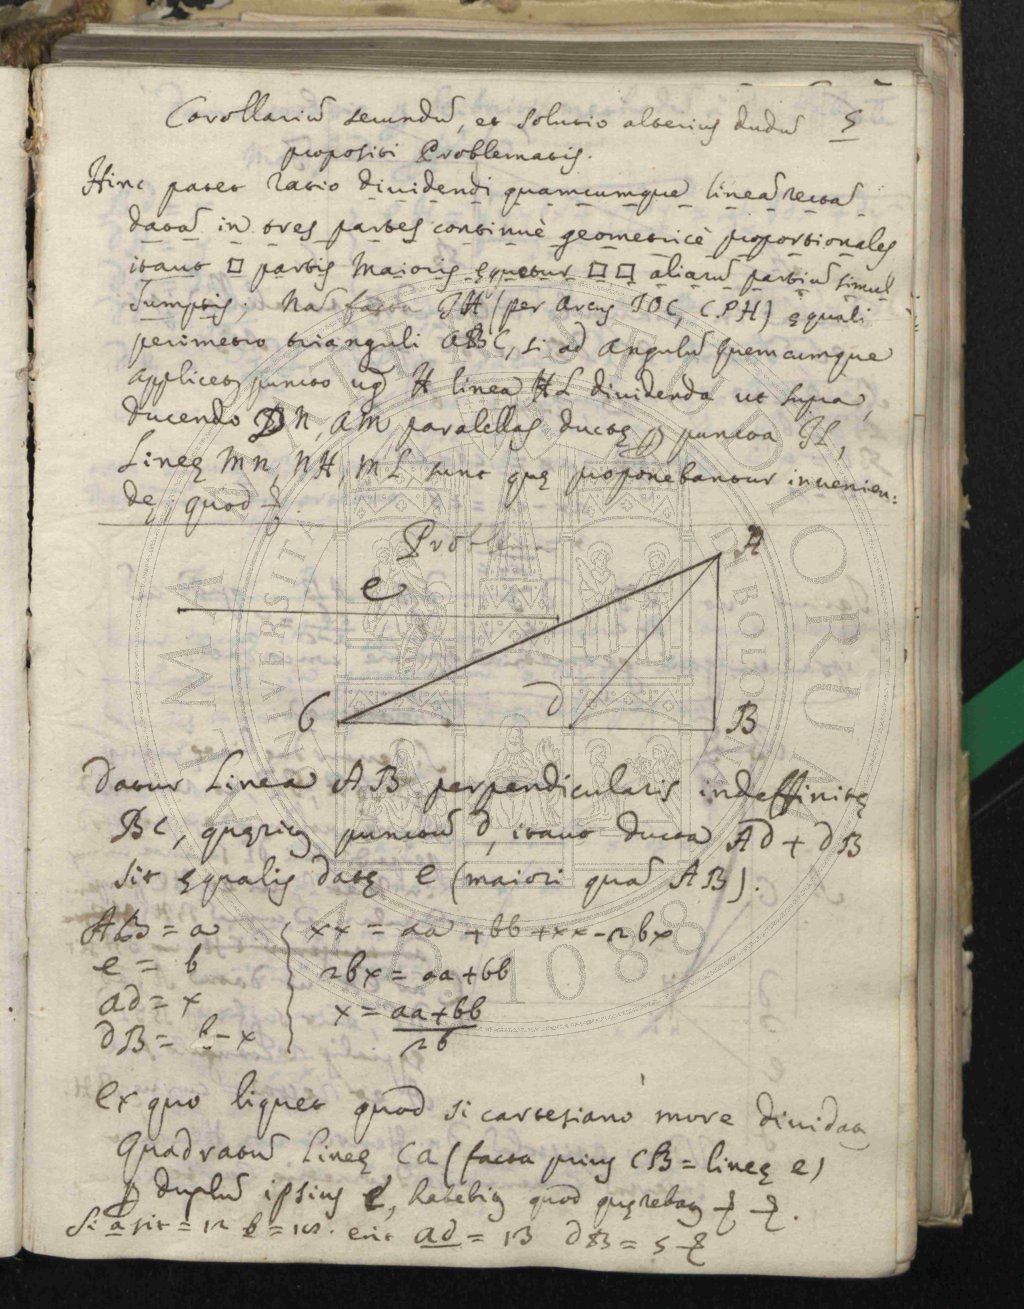 Corollariū secundū, et solutio alterius dudū 5
propositi Problematis.
Hinc patet ratio diuidendi quamcumque lineā rectā
datā in tres partes continuè geometricè proportionales
itaut □ partis maioris ęquetur □□ aliarū partiū simul
sumptis; Nā facta IH (per arcus IOC, CPH) ęquali
perimetro trianguli ABC, si ad angulū quemcumque
applicet puncto H linea HL diuidenda ut supra,
ducendo DN, AM parallelas ductę puncta IL,
Lineę MN, NH, ML, sunt quę proponebantur inuenien:
dę; quod
Problema
A
e
C
d
B
Datur Linea AB perpendicularis indeffinitę
BC, quęritur punctū d, itaut ducta Ad + dB
sit ęqualis datę e (maiori quā AB).
AB = a
e = b
ad = x
dB = b - x
xx = aa + bb + xx - 2bx
2bx = aa + bb
x = aa + bb
2b
Ex quo liquet quod si cartesiano more diuidatur
Quadratū Lineę CA (facta prius CB = lineę e)
p duplū ipsius e, habebis quod quęrebas
Si a sit = 12 b = 18. erit ad = 13 dB = 5